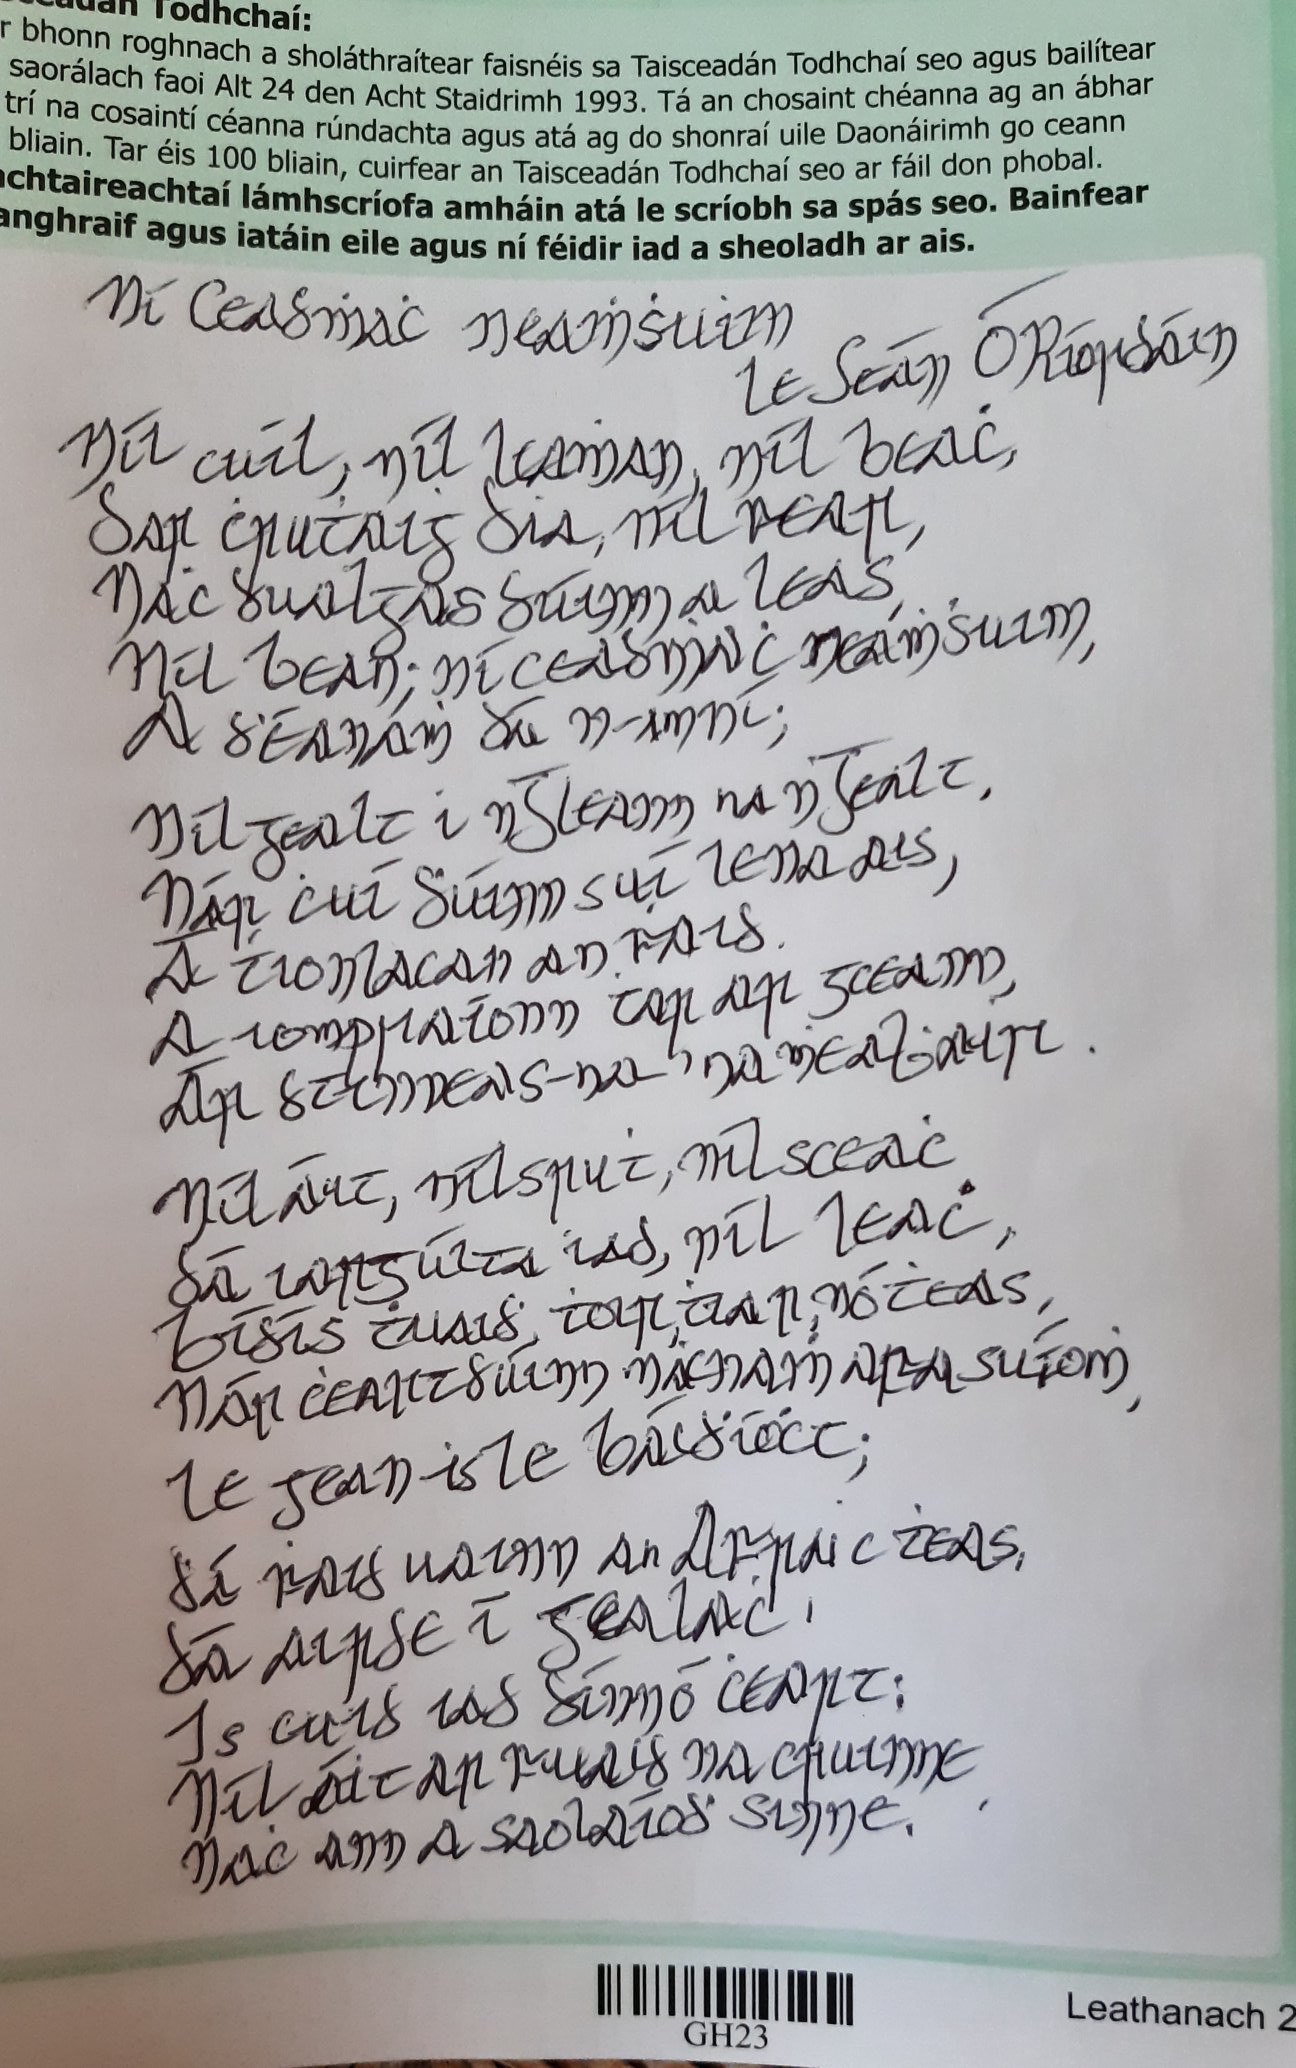 ceadán Todhchaí:
r bhonn roghnach a sholáthraítear faisnéis sa Taisceadán Todhchaí seo agus bailítear
saorálach faoi Alt 24 den Acht Staidrimh 1993. Tá an chosaint chéanna ag an ábhar
trí na cosaintí céanna rúndachta agus atá ag do shonraí uile Daonáirimh go ceann
bliain. Tar éis 100 bliain, cuirfear an Taisceadán Todhchaí seo ar fáil don phobal.
achtaireachtaí lámhscríofa amháin atá le scríobh sa spás seo. Bainfear
anghraif agus iatáin eile agus ní féidir iad a sheoladh ar ais.
Ní Ceadṁaċ neaṁṡuim
le Seán Ó Ríordáin
Níl cuil, níl leaṁan, níl beaċ,
Dar ċruṫaiġ Dia, níl fear,
Naċ dualgas dúinn a leas,
Níl bean; ní ceadṁaċ neaṁṡuim,
A ḋéanaṁ dá n-imní;
Níl gealt i nGleann na nGealt,
Nár ċuí dúinn suí lena ais,
Á ṫionlacan an ḟaid.
A iompraíonn thar ar gceann,
Ár dtinneas-na 'na ṁeaḃair.
Níl áit, níl sruṫ, níl sceaċ
Dá iargúlta iad, níl leaċ,
Bídís ṫuaiḋ, ṫoir, ṫiar, nó ṫeas,
Nár ċeart dúinn máċnaṁ ar a suíoṁ,
Le gean is le báiḋíoċt;
Dá ḟaid uainn an Afraic Ṫeas,
Dá airde í gealaċ,
Is cuid iad dínn ó ċeart:
Níl áit ar fuaid na cruinne
Naċ ann a saolaíoḋ sinne.
GH23
Leathanach 2